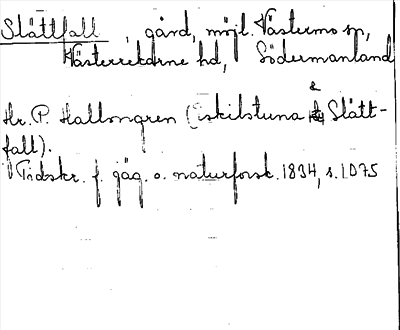 Slättfall, gård, möjl. Västermo sn,
Västerrekarne hd, Södermanland
Hr. P. Hallongren (Eskilstuna & Slätt-
fall).
Tidskr. f. jäg. o. naturforsk. 1834, s. 1075